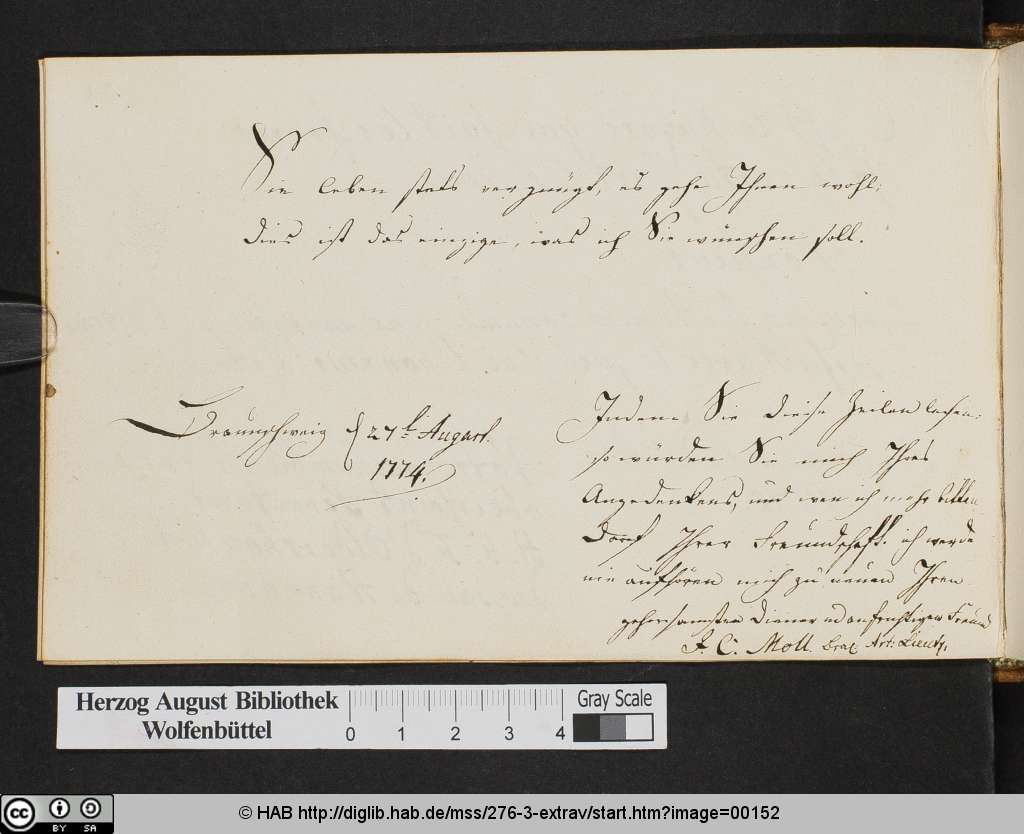 Sie leben stets vergnügt, es gehe Ihnen wohl;
dies ist das einzige, was ich Sie wünschen soll.
Braunschweig d 27t August.
1774.
Indem Sie diese Zeilen lesen,
so würden Sie mich Ihres
Angedenkens, und wen ich mehr bitten
Darf Ihrer Freundschaft. ich werde
nie aufhören mich zu nenen Ihren
gehorsamsten Diener ud aufrichtigen Freund
J. C. Moll. Art: Lieut.
Herzog August Bibliothek
Wolfenbüttel
0 1 2 3 4
Gray Scale
cc BY SA
© HAB http://diglib.hab.de/mss/276-3-extrav/start.htm?image=00152